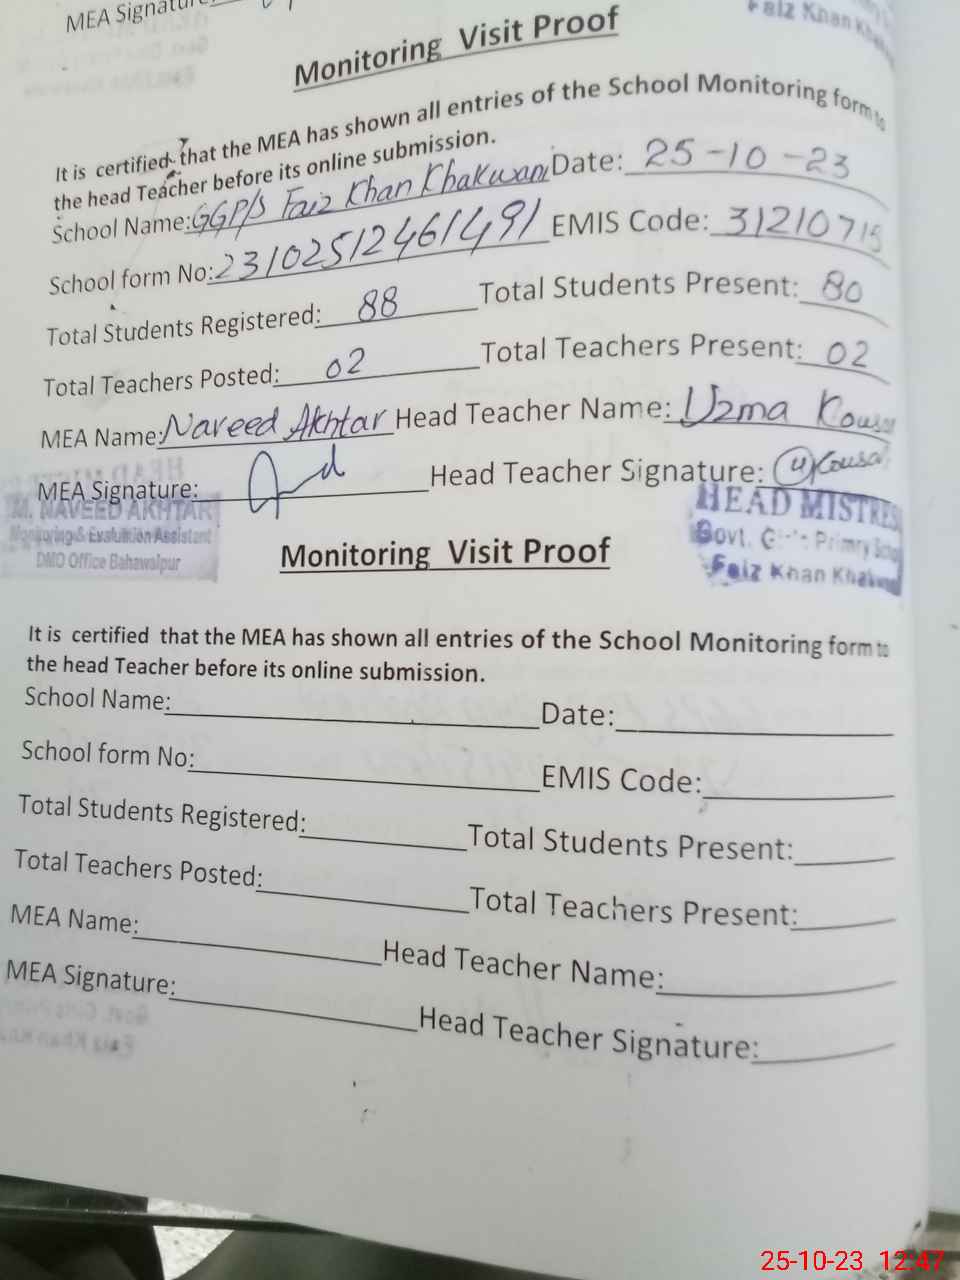 MEA Signature:
Faiz Khan
Monitoring Visit Proof
It is certified that the MEA has shown all entries of the School Monitoring form to
the head Teacher before its online submission.
School Name: GGP/S Faiz Khan Khakwani Date: 25-10-23
School form No: 23102512461491 EMIS Code: 31210715
Total Students Registered: 88 Total Students Present: 80
Total Teachers Posted: 02 Total Teachers Present: 02
MEA Name: Naveed Akhtar Head Teacher Name: Uzma Kousar
MEA Signature: Head Teacher Signature: U Kousar
M. NAVEED AKHTAR
Monitoring & Evaluition Assistant
DMO Office Bahawalpur
HEAD MISTRES
Govt. Primry
Faiz Khan
Monitoring Visit Proof
It is certified that the MEA has shown all entries of the School Monitoring form to
the head Teacher before its online submission.
School Name: Date:
School form No: EMIS Code:
Total Students Registered: Total Students Present:
Total Teachers Posted: Total Teachers Present:
MEA Name: Head Teacher Name:
MEA Signature: Head Teacher Signature:
25-10-23 12:47